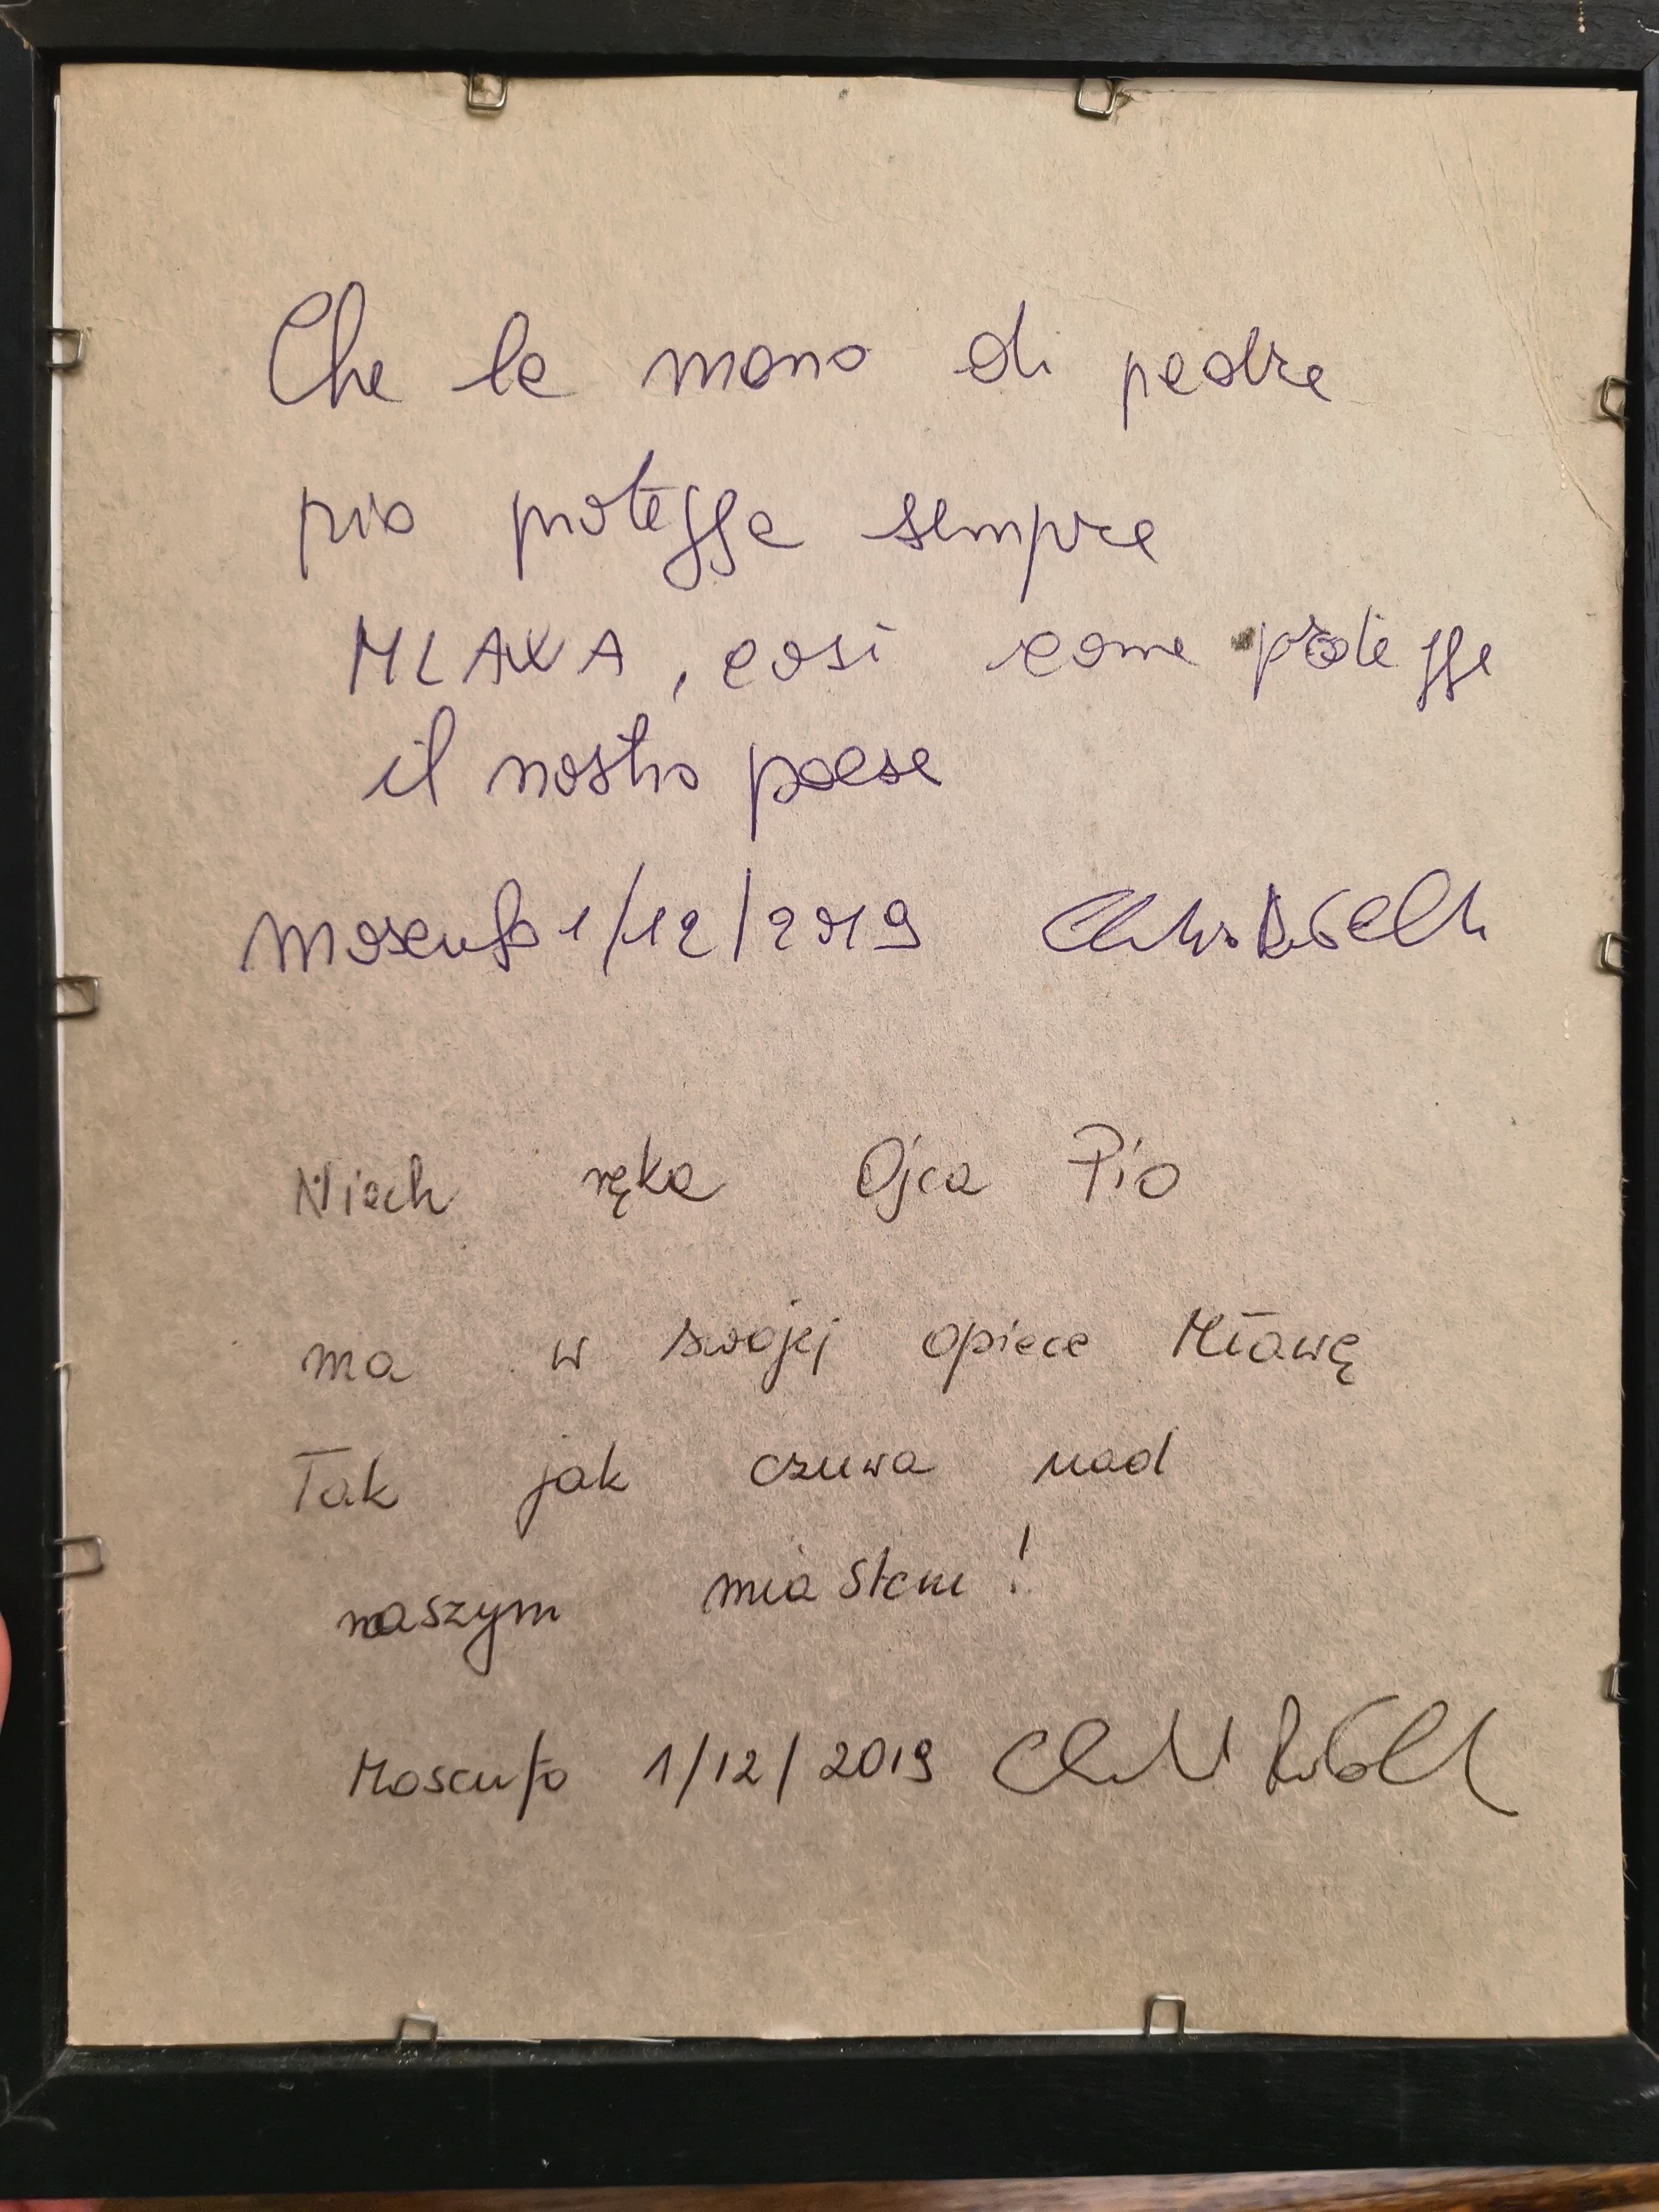 Che la mano di padre
pio protegga sempre
MLAWA, così come protegge
il nostro paese
Moscufo 1/12/2019
Niech ręka Ojca Pio
ma w swojej opiece Mławę
Tak jak czuwa nad
naszym miastem!
Moscufo 1/12/2019